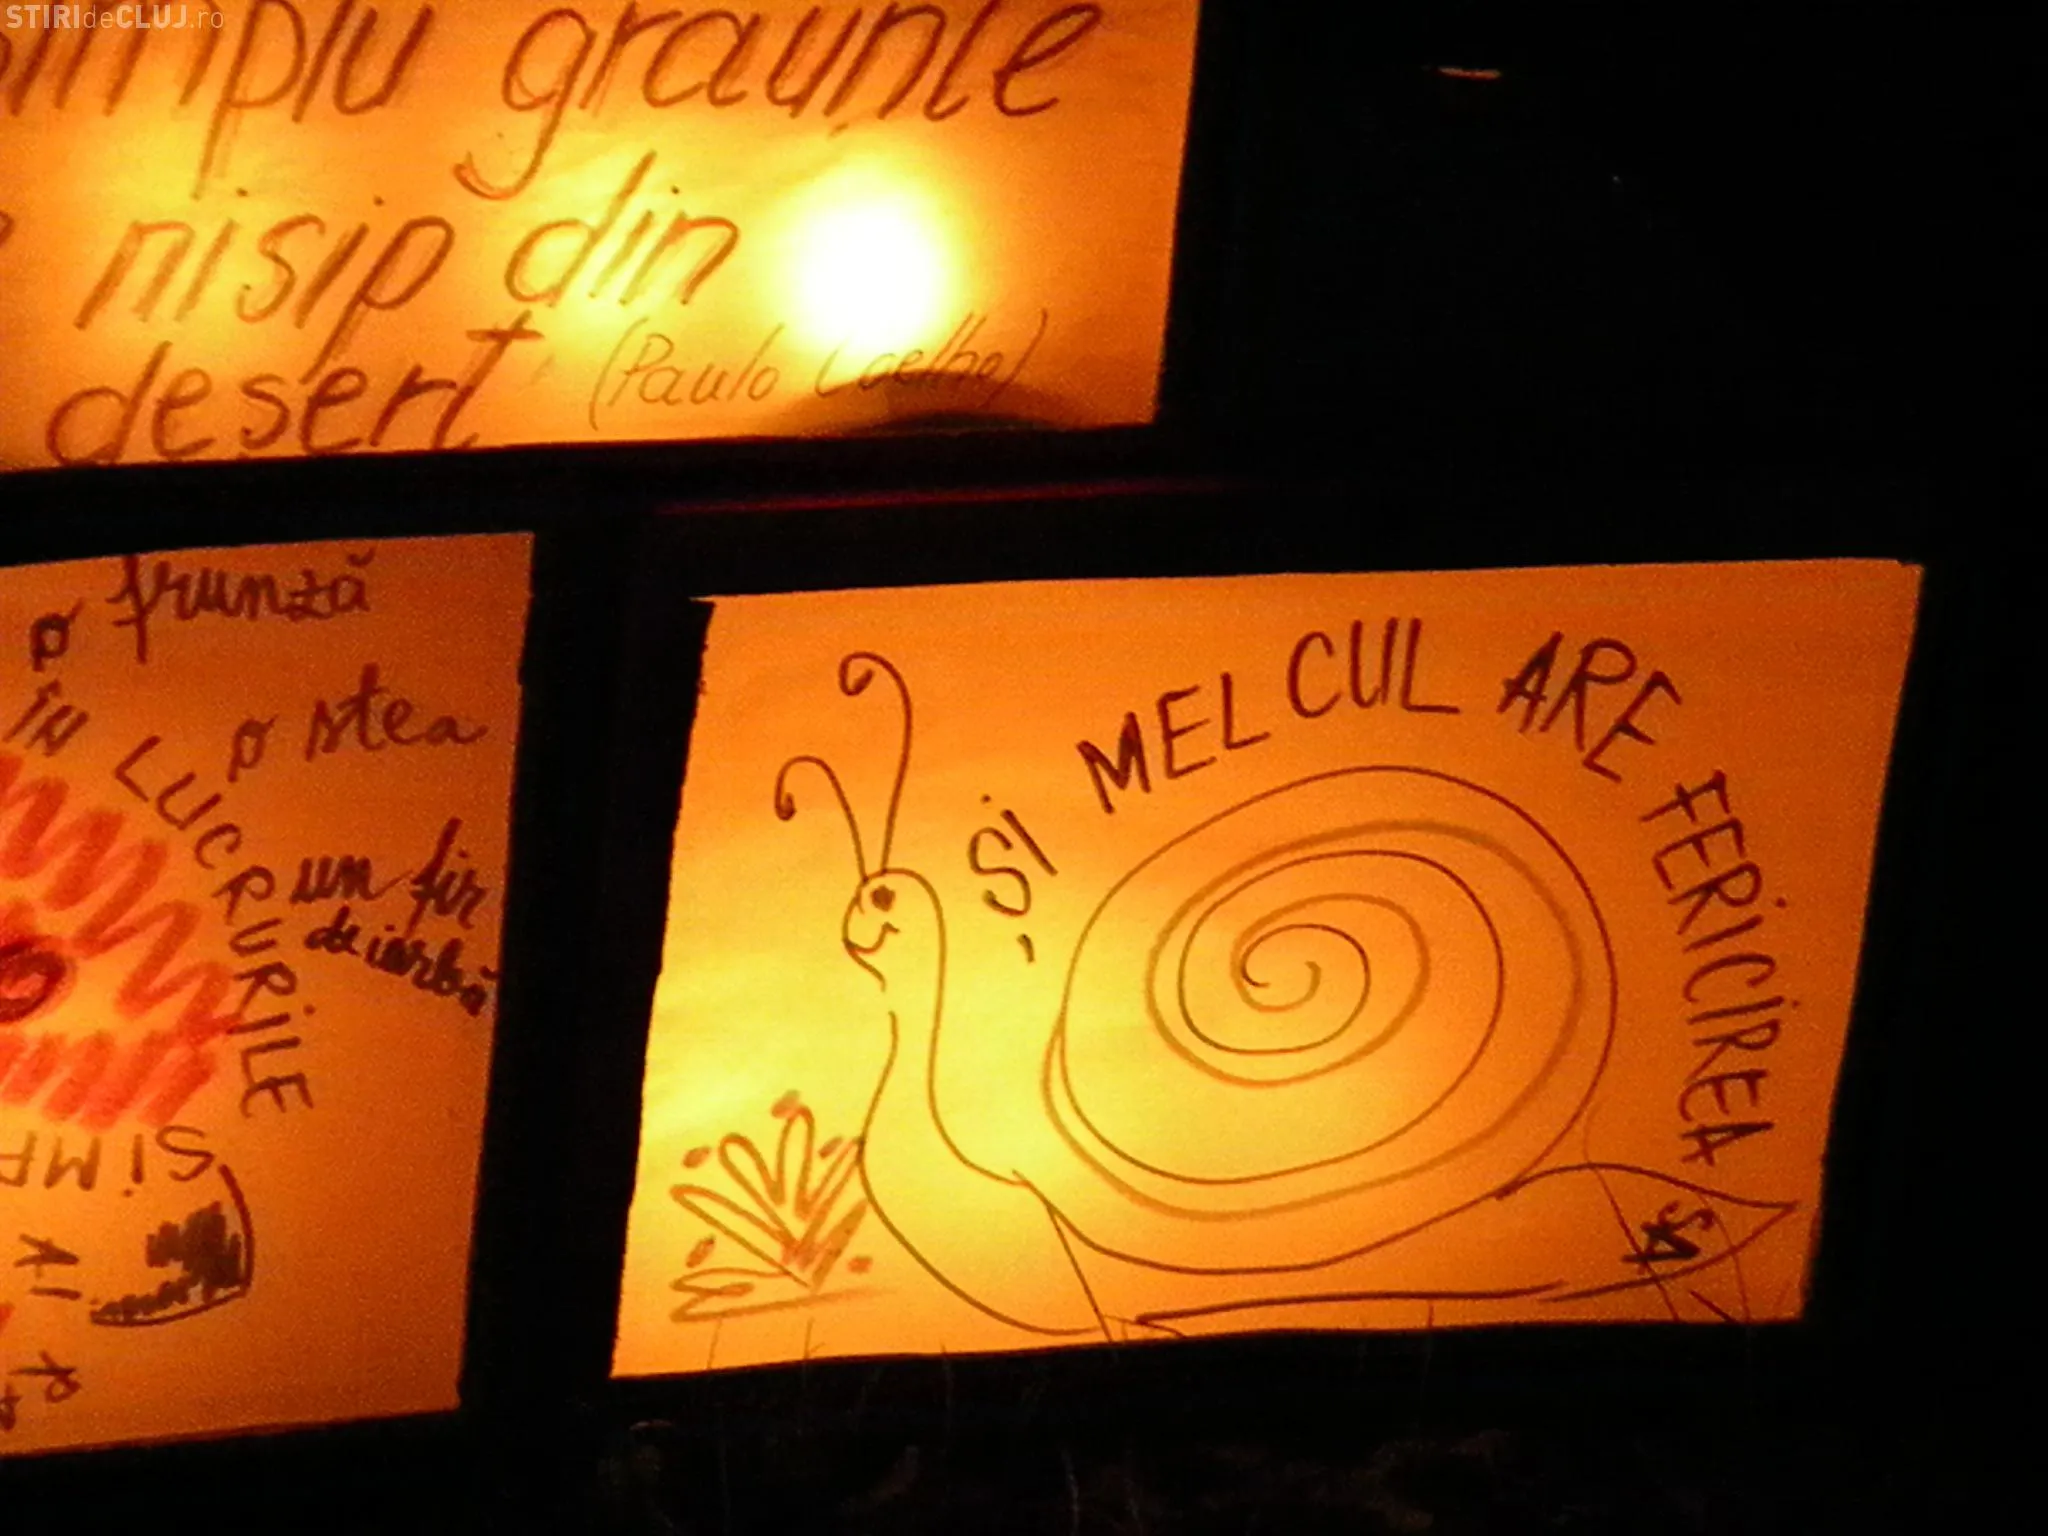 STIRIdeCLUJ.ro
simplu graunte
nisip din
desert
(Paulo Coelho)
o frunză
o stea
un fir
de iarbă
ÎN LUCRURILE
SiMP
ȘI MELCUL ARE FERICIREA
SA